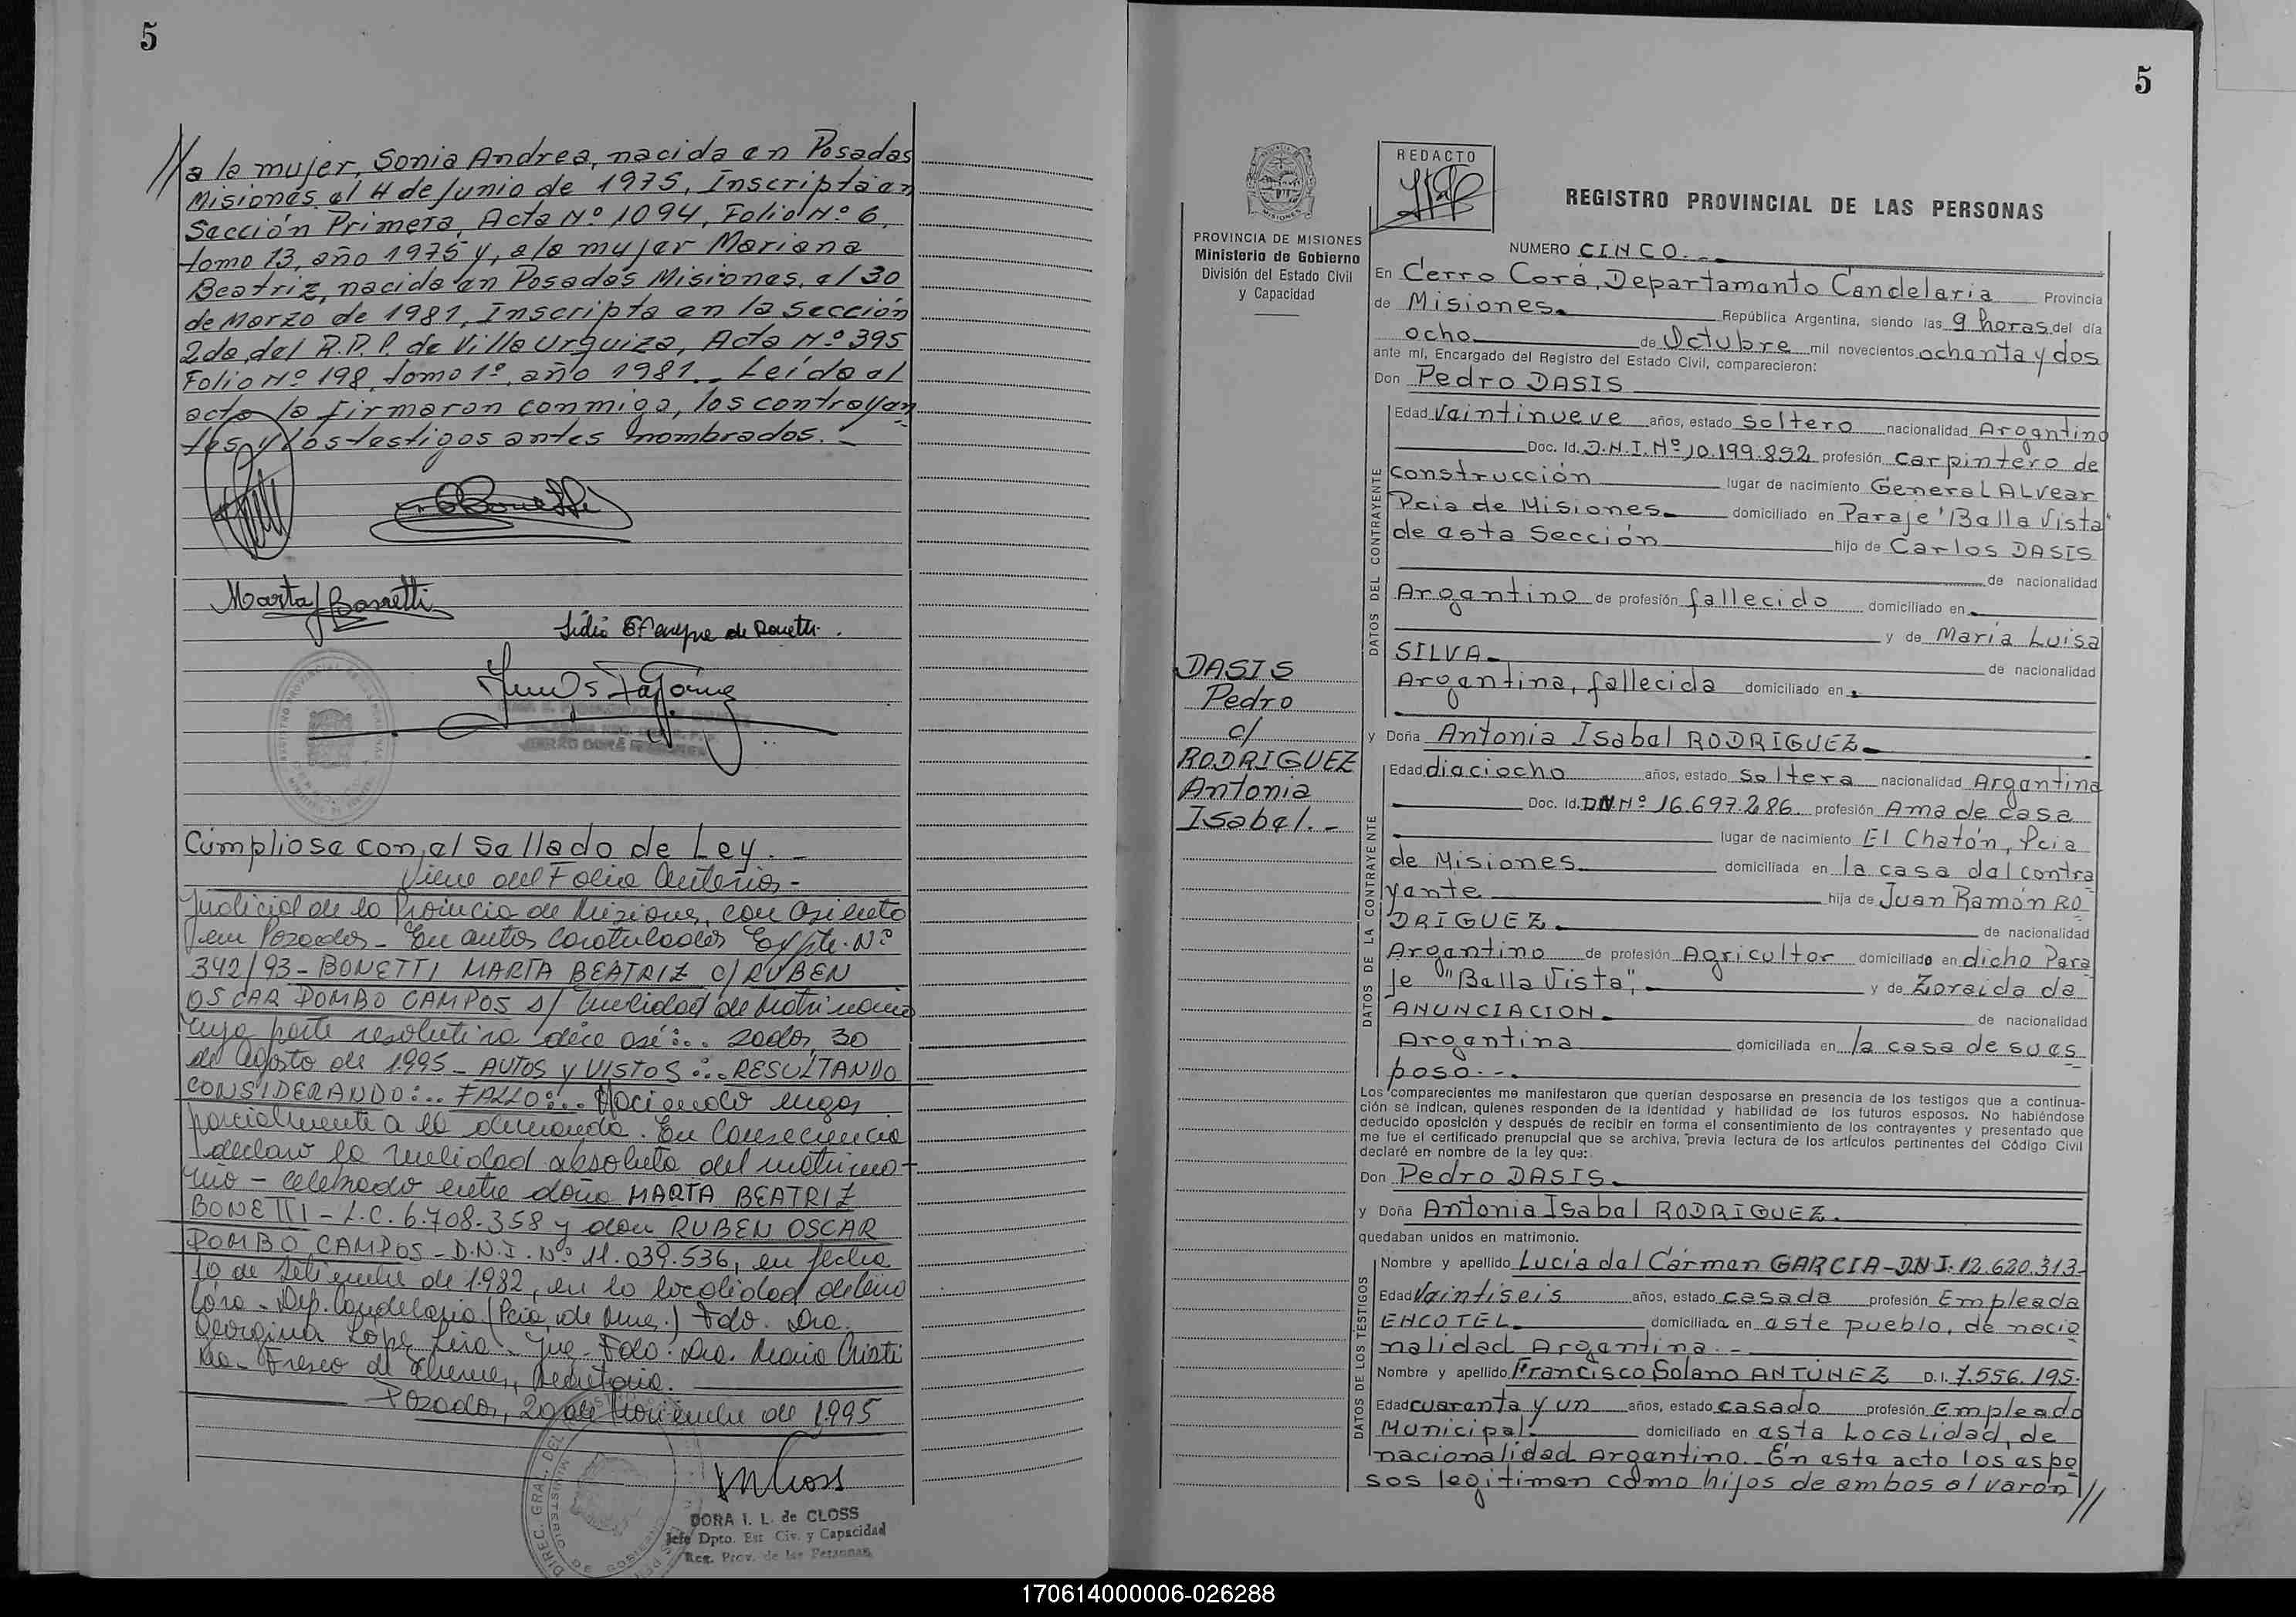 5
//a la mujer, Sonia Andrea, nacida en Posadas
Misiones, el 4 de Junio de 1975, Inscripta en
Sección Primera, Acta Nº 1094, Folio Nº 6,
tomo 13, año 1975 y, a la mujer Mariana
Beatriz, nacida en Posadas Misiones, el 30
de Marzo de 1981, Inscripta en la Sección
2da, del R.P.P. de Villa Urquiza, Acta Nº 395
Folio Nº 198, tomo 1º, año 1981.- Leída el
acta la firmaron conmigo, los contrayen
tes y los testigos antes nombrados.-
Cúmpliose con el Sellado de Ley.-
Viene del Folio Anterior-
Judicial de la Provincia de Misiones, con asiento
en Posadas- En autos caratulados Expte. Nº
342/93- BONETTI MARTA BEATRIZ C/ RUBEN
OSCAR POMBO CAMPOS s/ Nulidad de Matrimonio
cuya parte resolutiva dice así:.. Posadas, 30
de Agosto de 1995- AUTOS y VISTOS:.. RESULTANDO
CONSIDERANDO:.. FALLO:.. Haciendo lugar
parcialmente a la demanda. En Consecuencia
declaro la nulidad absoluta del matrimo-
nio - celebrado entre doña MARTA BEATRIZ
BONETTI - L.C. 6.708.358 y don RUBEN OSCAR
POMBO CAMPOS - D.N.I. Nº 11.039.536, en fecha
10 de Setiembre de 1982, en la localidad de Cerro
Córa - Dep. Candelaria (Pcia. de Mnes.) Fdo. Dra.
Georgina López Liva - Jue - Fdo: Dra. María Cristi
na Fresco de, Secretaria.
Posadas, 29 de Noviembre de 1995
DORA I. L. de CLOSS
Jefe Dpto. Est. Civ. y Capacidad
Reg. Prov. de las Personas
5
REDACTO
REGISTRO PROVINCIAL DE LAS PERSONAS
PROVINCIA DE MISIONES
Ministerio de Gobierno
División del Estado Civil
y Capacidad
DASIS
Pedro
c/
RODRIGUEZ
Antonia
Isabel.-
NUMERO CINCO.--
En Cerro Corá, Departamento Candelaria Provincia
de Misiones. República Argentina, siendo las 9 horas del día
ocho de Octubre mil novecientos ochenta y dos
ante mí, Encargado del Registro del Estado Civil, comparecieron:
Don Pedro DASIS
DATOS DEL CONTRAYENTE
Edad Veintinueve años, estado Soltero nacionalidad Argentino
Doc. Id. D.N.I. Nº 10.199.892 profesión carpintero de
construcción lugar de nacimiento General ALvear
Pcia de Misiones. domiciliado en Paraje "Bella Vista"
de esta Sección hijo de Carlos DASIS
de nacionalidad
Argentino de profesión fallecido domiciliado en
y de María Luisa
SILVA. de nacionalidad
Argentina, fallecida domiciliado en
y Doña Antonia Isabel RODRIGUEZ.
DATOS DE LA CONTRAYENTE
Edad dieciocho años, estado Soltera nacionalidad Argentina
Doc. Id. DNI Nº 16.697.286 profesión Ama de casa
lugar de nacimiento El Chatón, Pcia
de Misiones. domiciliada en la casa del contra
yente hija de Juan Ramón RO
DRIGUEZ. de nacionalidad
Argentino de profesión Agricultor domiciliado en dicho Para
je "Bella Vista", y de Zoraida de
ANUNCIACION. de nacionalidad
Argentina domiciliada en la casa de su es
poso.--.
Los comparecientes me manifestaron que querían desposarse en presencia de los testigos que a continua-
ción se indican, quienes responden de la identidad y habilidad de los futuros esposos. No habiéndose
deducido oposición y después de recibir en forma el consentimiento de los contrayentes y presentado que
me fue el certificado prenupcial que se archiva, previa lectura de los artículos pertinentes del Código Civil
declaré en nombre de la ley que:
Don Pedro DASIS.
y Doña Antonia Isabel RODRIGUEZ.
quedaban unidos en matrimonio.
DATOS DE LOS TESTIGOS
Nombre y apellido Lucía del Cármen GARCIA-DNI. 12.620.313-
Edad Veintiseis años, estado casada profesión Empleada
ENCOTEL. domiciliada en este pueblo, de nacio
nalidad Argentina.-
Nombre y apellido Francisco Solano ANTÚNEZ D.I. 7.556.195.
Edad cuarenta y un años, estado casado profesión Empleado
Municipal. domiciliado en esta Localidad, de
nacionalidad Argentino.- En este acto los espo
sos legitiman como hijos de ambos al varón//
170614000006-026288